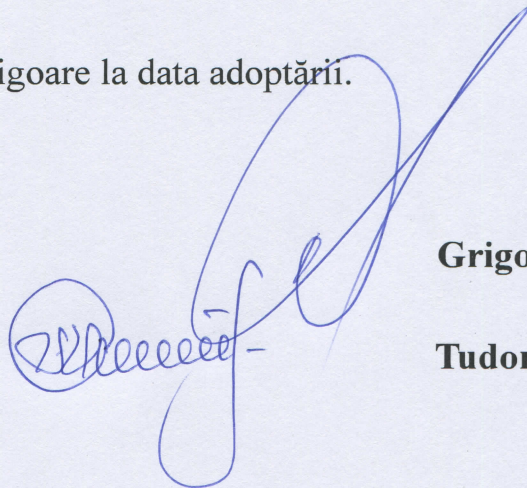 igoare la data adoptării.
Grigo
Tudor